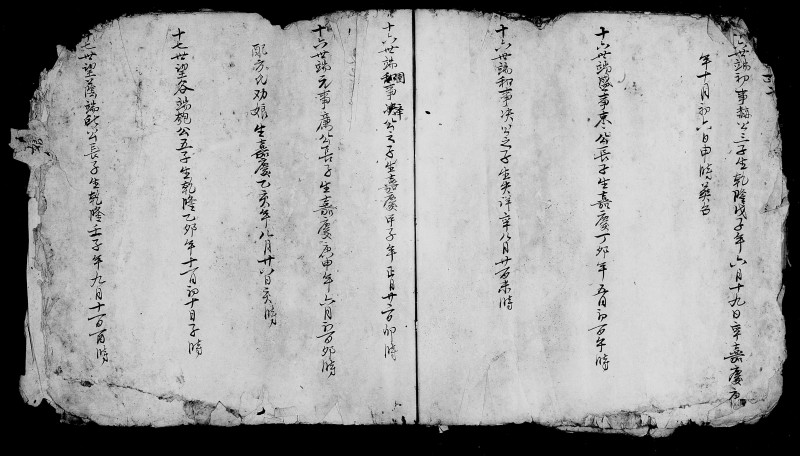 六世端初事赫公三子生乾隆戊子年六月十九日卒嘉慶
年十月初六日申時葬
十六世端事東公長子生嘉慶丁卯年五月初百午時
十六世端和事决公之子生失詳卒八月廿百未時
十六世端事公之子生嘉慶甲子年正月廿百卯時
十六世端元事廣公長子生嘉慶庚申年六月初百卯時
配氏劝娘生嘉慶乙亥年八月廿六日亥時
十七世望谷端抱公五子生乾隆乙卯年十一月初十日子時
十七世望蔭端公長子生乾隆壬子年九月十百酉時